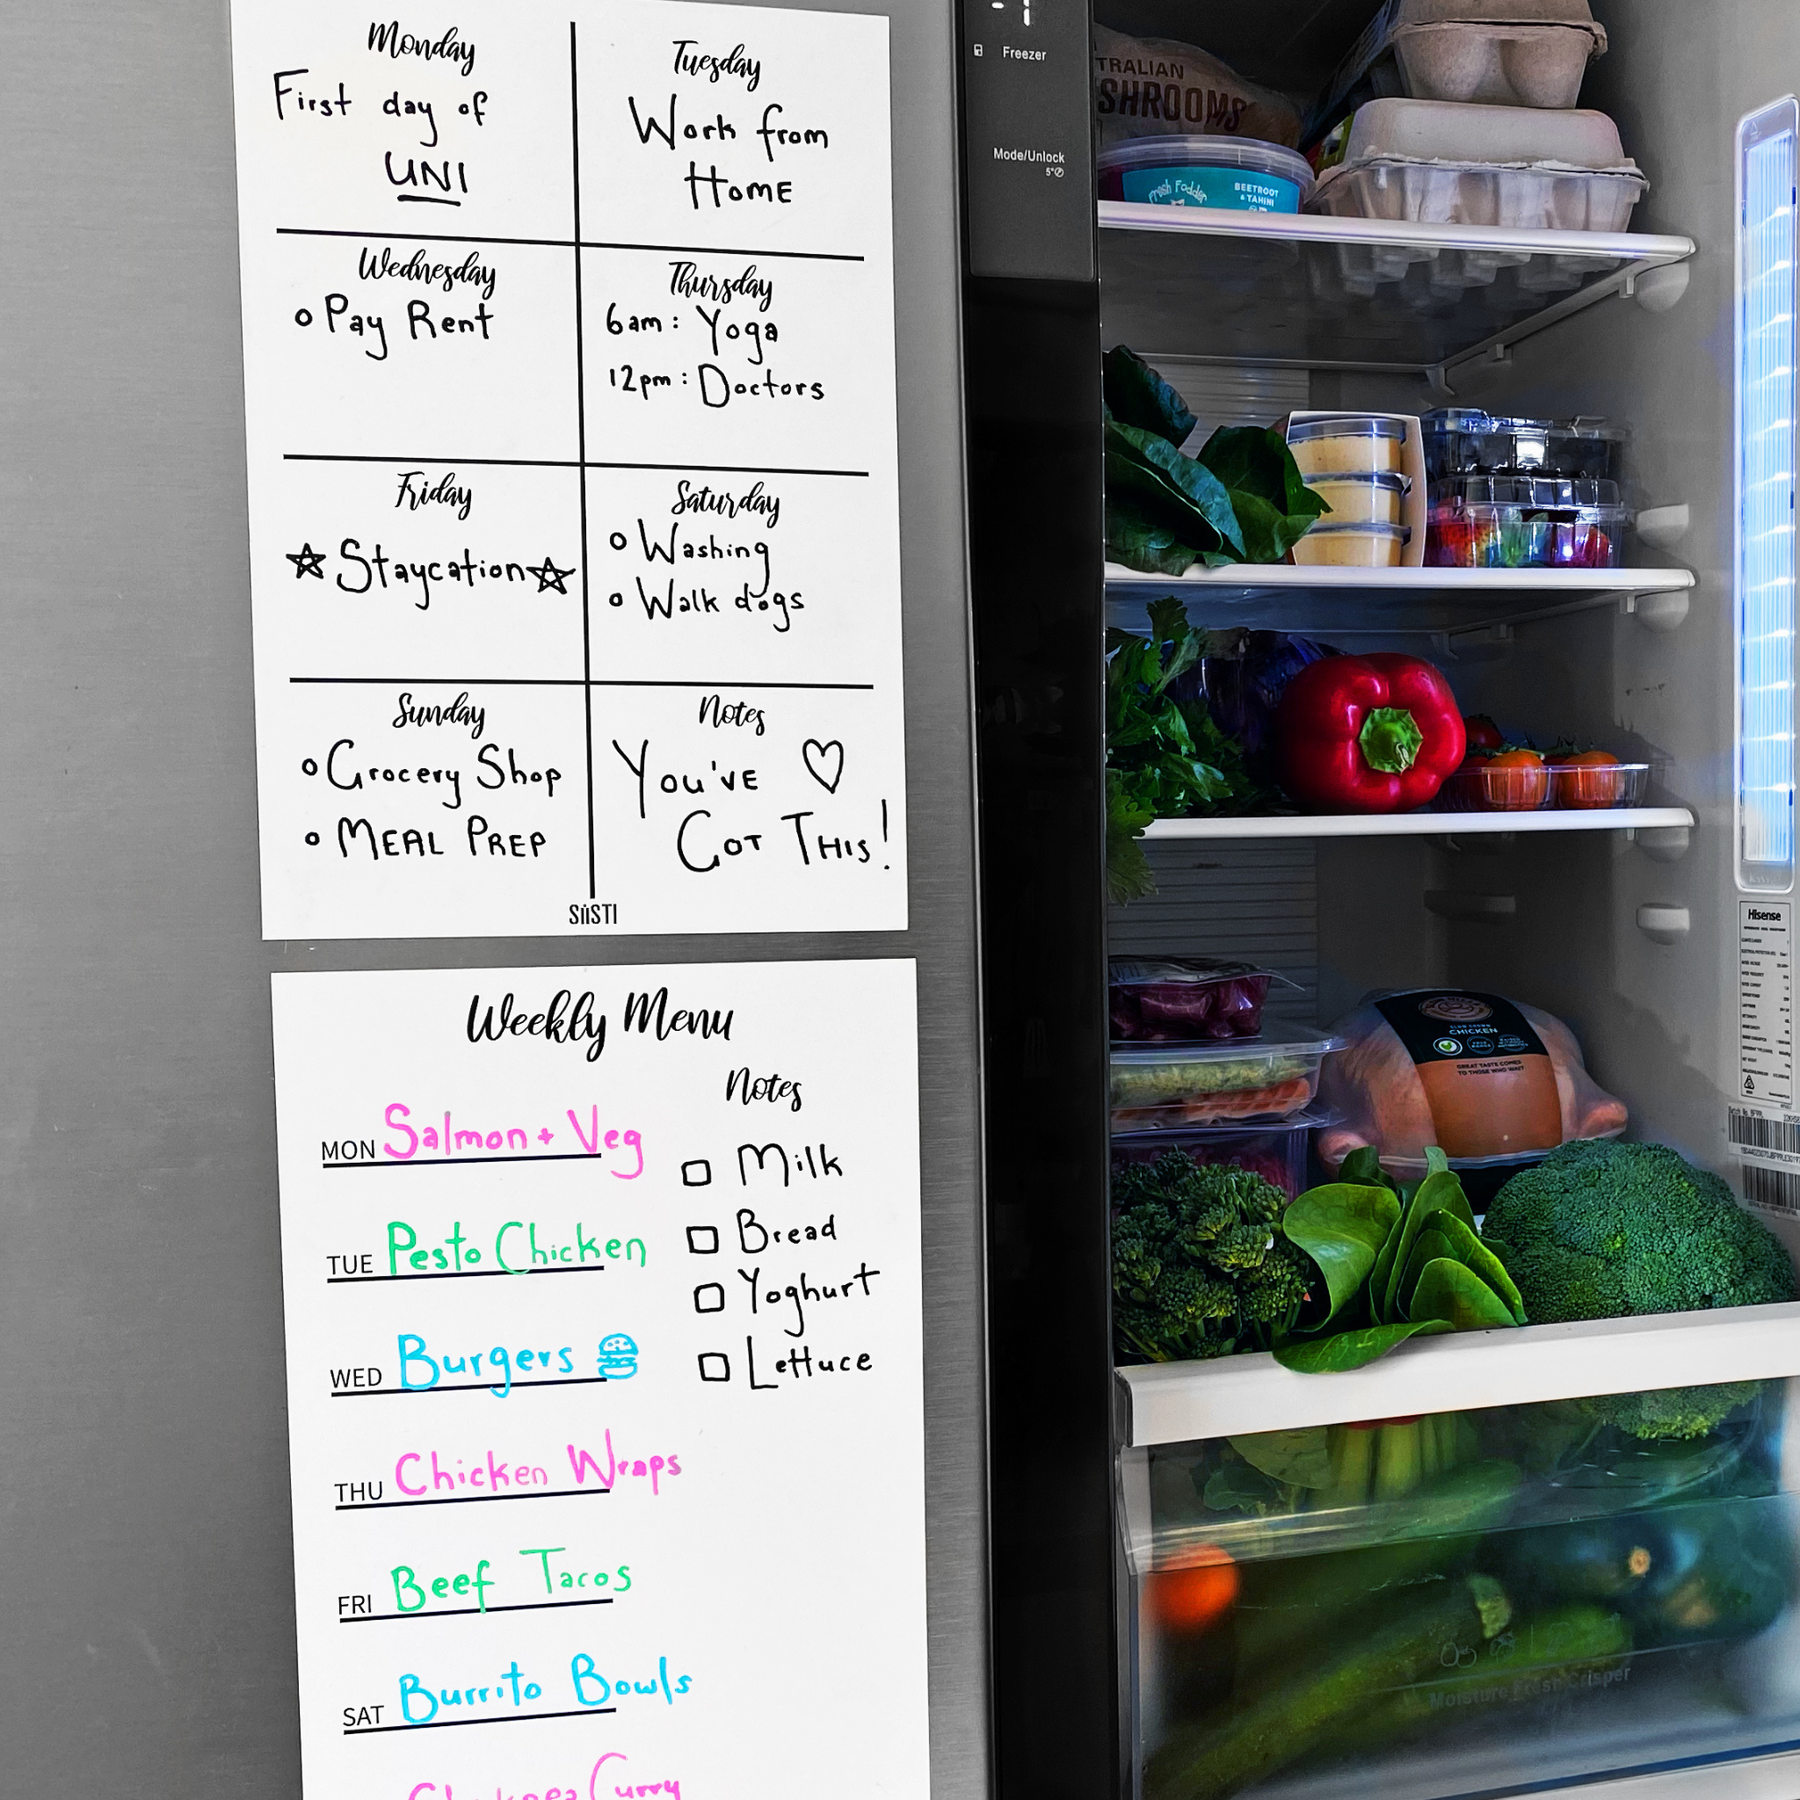 Monday
First day of
UNI
Tuesday
Work from
HOME
Wednesday
Pay Rent
Thursday
6am: Yoga
12pm: Doctors
Friday
Staycation
Saturday
Washing
Walk dogs
Sunday
Grocery Shop
MEAL PREP
Notes
You've
GOT THIS!
SiiSTI
Weekly Menu
MON Salmon + Veg
TUE Pesto Chicken
WED Burgers
THU Chicken Wraps
FRI Beef Tacos
SAT Burrito Bowls
Chickpea Curry
Notes
Milk
Bread
Yoghurt
Lettuce
Freezer
Mode/Unlock
TRALIAN
SHROOMS
Fresh Fodder
BEETROOT
& TAHINI
CHICKEN
GREAT TASTE COMES
TO THOSE WHO WAIT
Hisense
Moisture Fresh Crisper